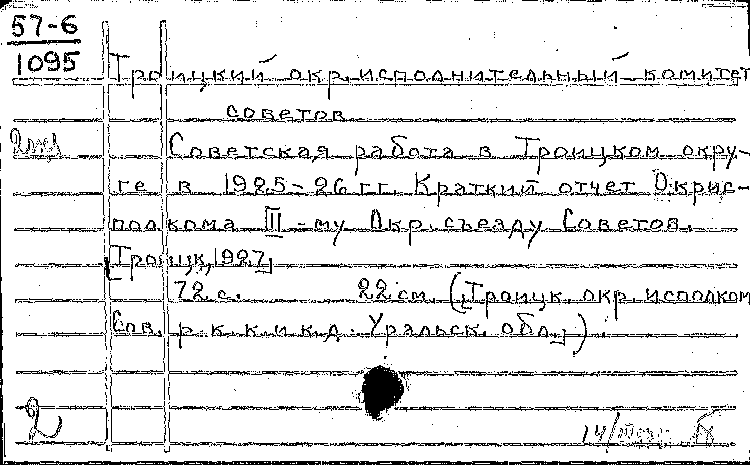 57-6
1095
Троицкий окр. исполнительный комитет
советов
2 экз
Советская работа в Троицком окру-
ге в 1925-26 гг. Краткий отчет Окрис-
полкома III-му Окр. съезду Советов.
[Троицк, 1927]
72 с. 22 см. ([Троицк. окр. исполком
Сов. р. к. к. и к. д. Уральск. обл.]).
2
14/